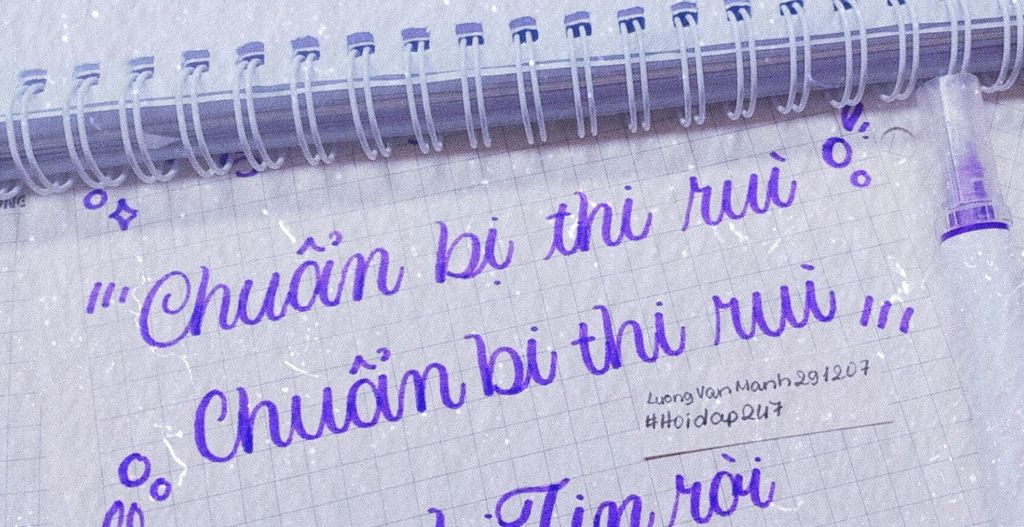 "'Chuẩn bị thi ruì
Chuẩn bi thi ruì '''
LuongVanManh291207
#Hoidap247
Tin ròi